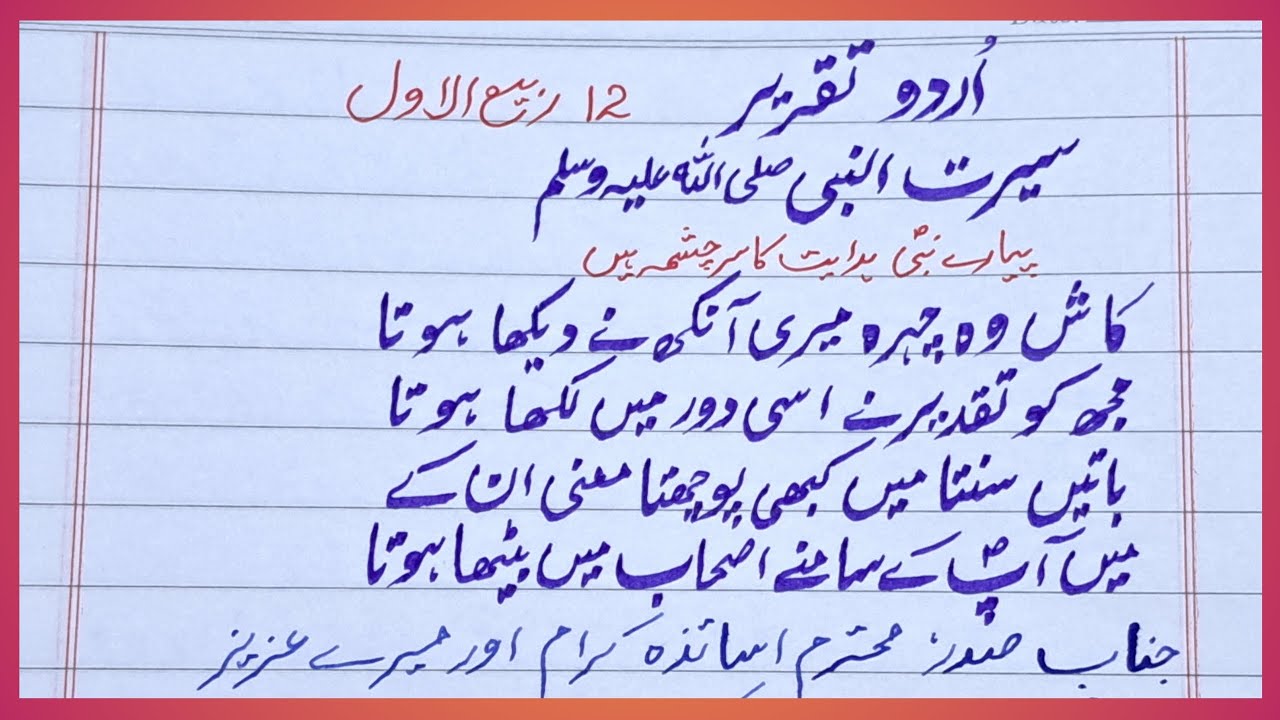 اُردو تقریر ١٢ ربیع الاول
سیرت النبی صلی اللہ علیہ وسلم
پیارے نبیؐ ہدایت کا سرچشمہ ہیں
کاش وہ چہرہ میری آنکھ نے دیکھا ہوتا
مجھ کو تقدیر نے اسی دور میں لکھا ہوتا
باتیں سنتا میں کبھی پوچھتا معنی ان کے
میں آپؐ کے سامنے اصحاب میں بیٹھا ہوتا
جناب صدر! محترم اساتذہ کرام اور میرے عزیز